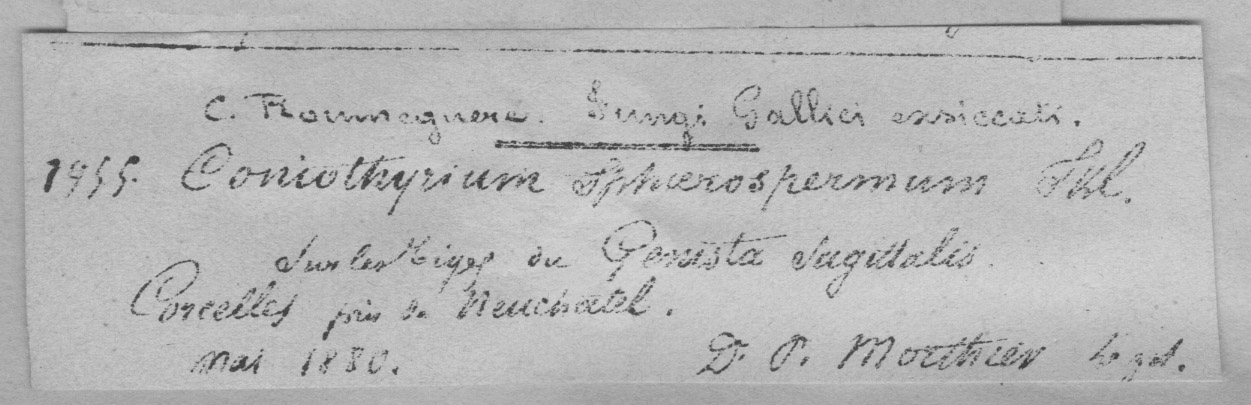 C. Roumeguere. Fungi Gallici exsiccati.
1955. Coniothyrium Sphaerospermum Fkl.
Sur les tiges du Genista Sagittalis.
Corcelles près de Neuchatel.
mai 1880. Dr P. Morthier legit.